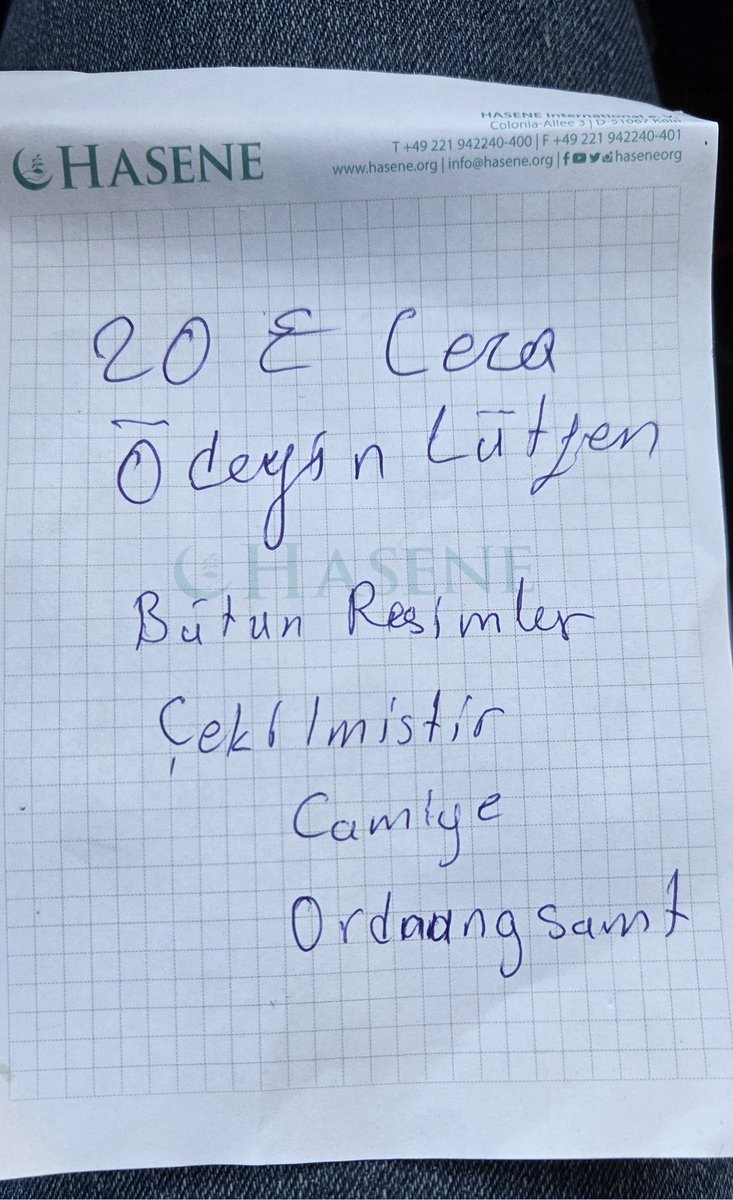 HASENE International e. V.
Colonia-Allee 3 | D-51067 Köln
T +49 221 942240-400 | F +49 221 942240-401
www.hasene.org | info@hasene.org | haseneorg
HASENE
20 € Ceza
Ödeyin Lütfen
HASENE
Bütun Resimler
Çekilmistir
Camiye
Ordnungsamt